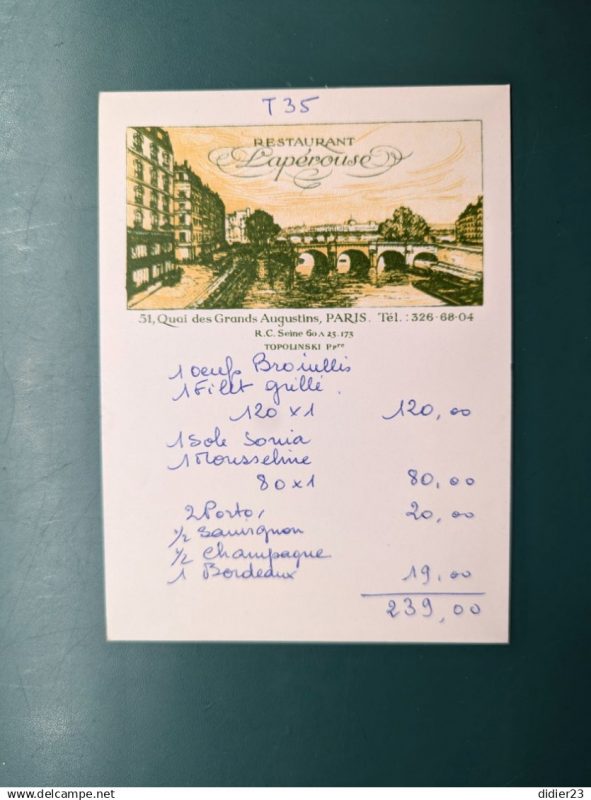 T35
RESTAURANT
Lapérouse
51, Quai des Grands Augustins, PARIS. Tél.: 326-68-04
R.C. Seine 60 A 25.173
TOPOLINSKI Ppre
1 oeufs Brouillis
1 Filet grillé.
120 x 1 120,00
1 Sole Sonia
1 Mousseline
80 x 1 80,00
2 Porto, 20,00
1/2 Sauvignon
1/2 Champagne
1 Bordeaux 19,00
239,00
delcampe.net
didier23